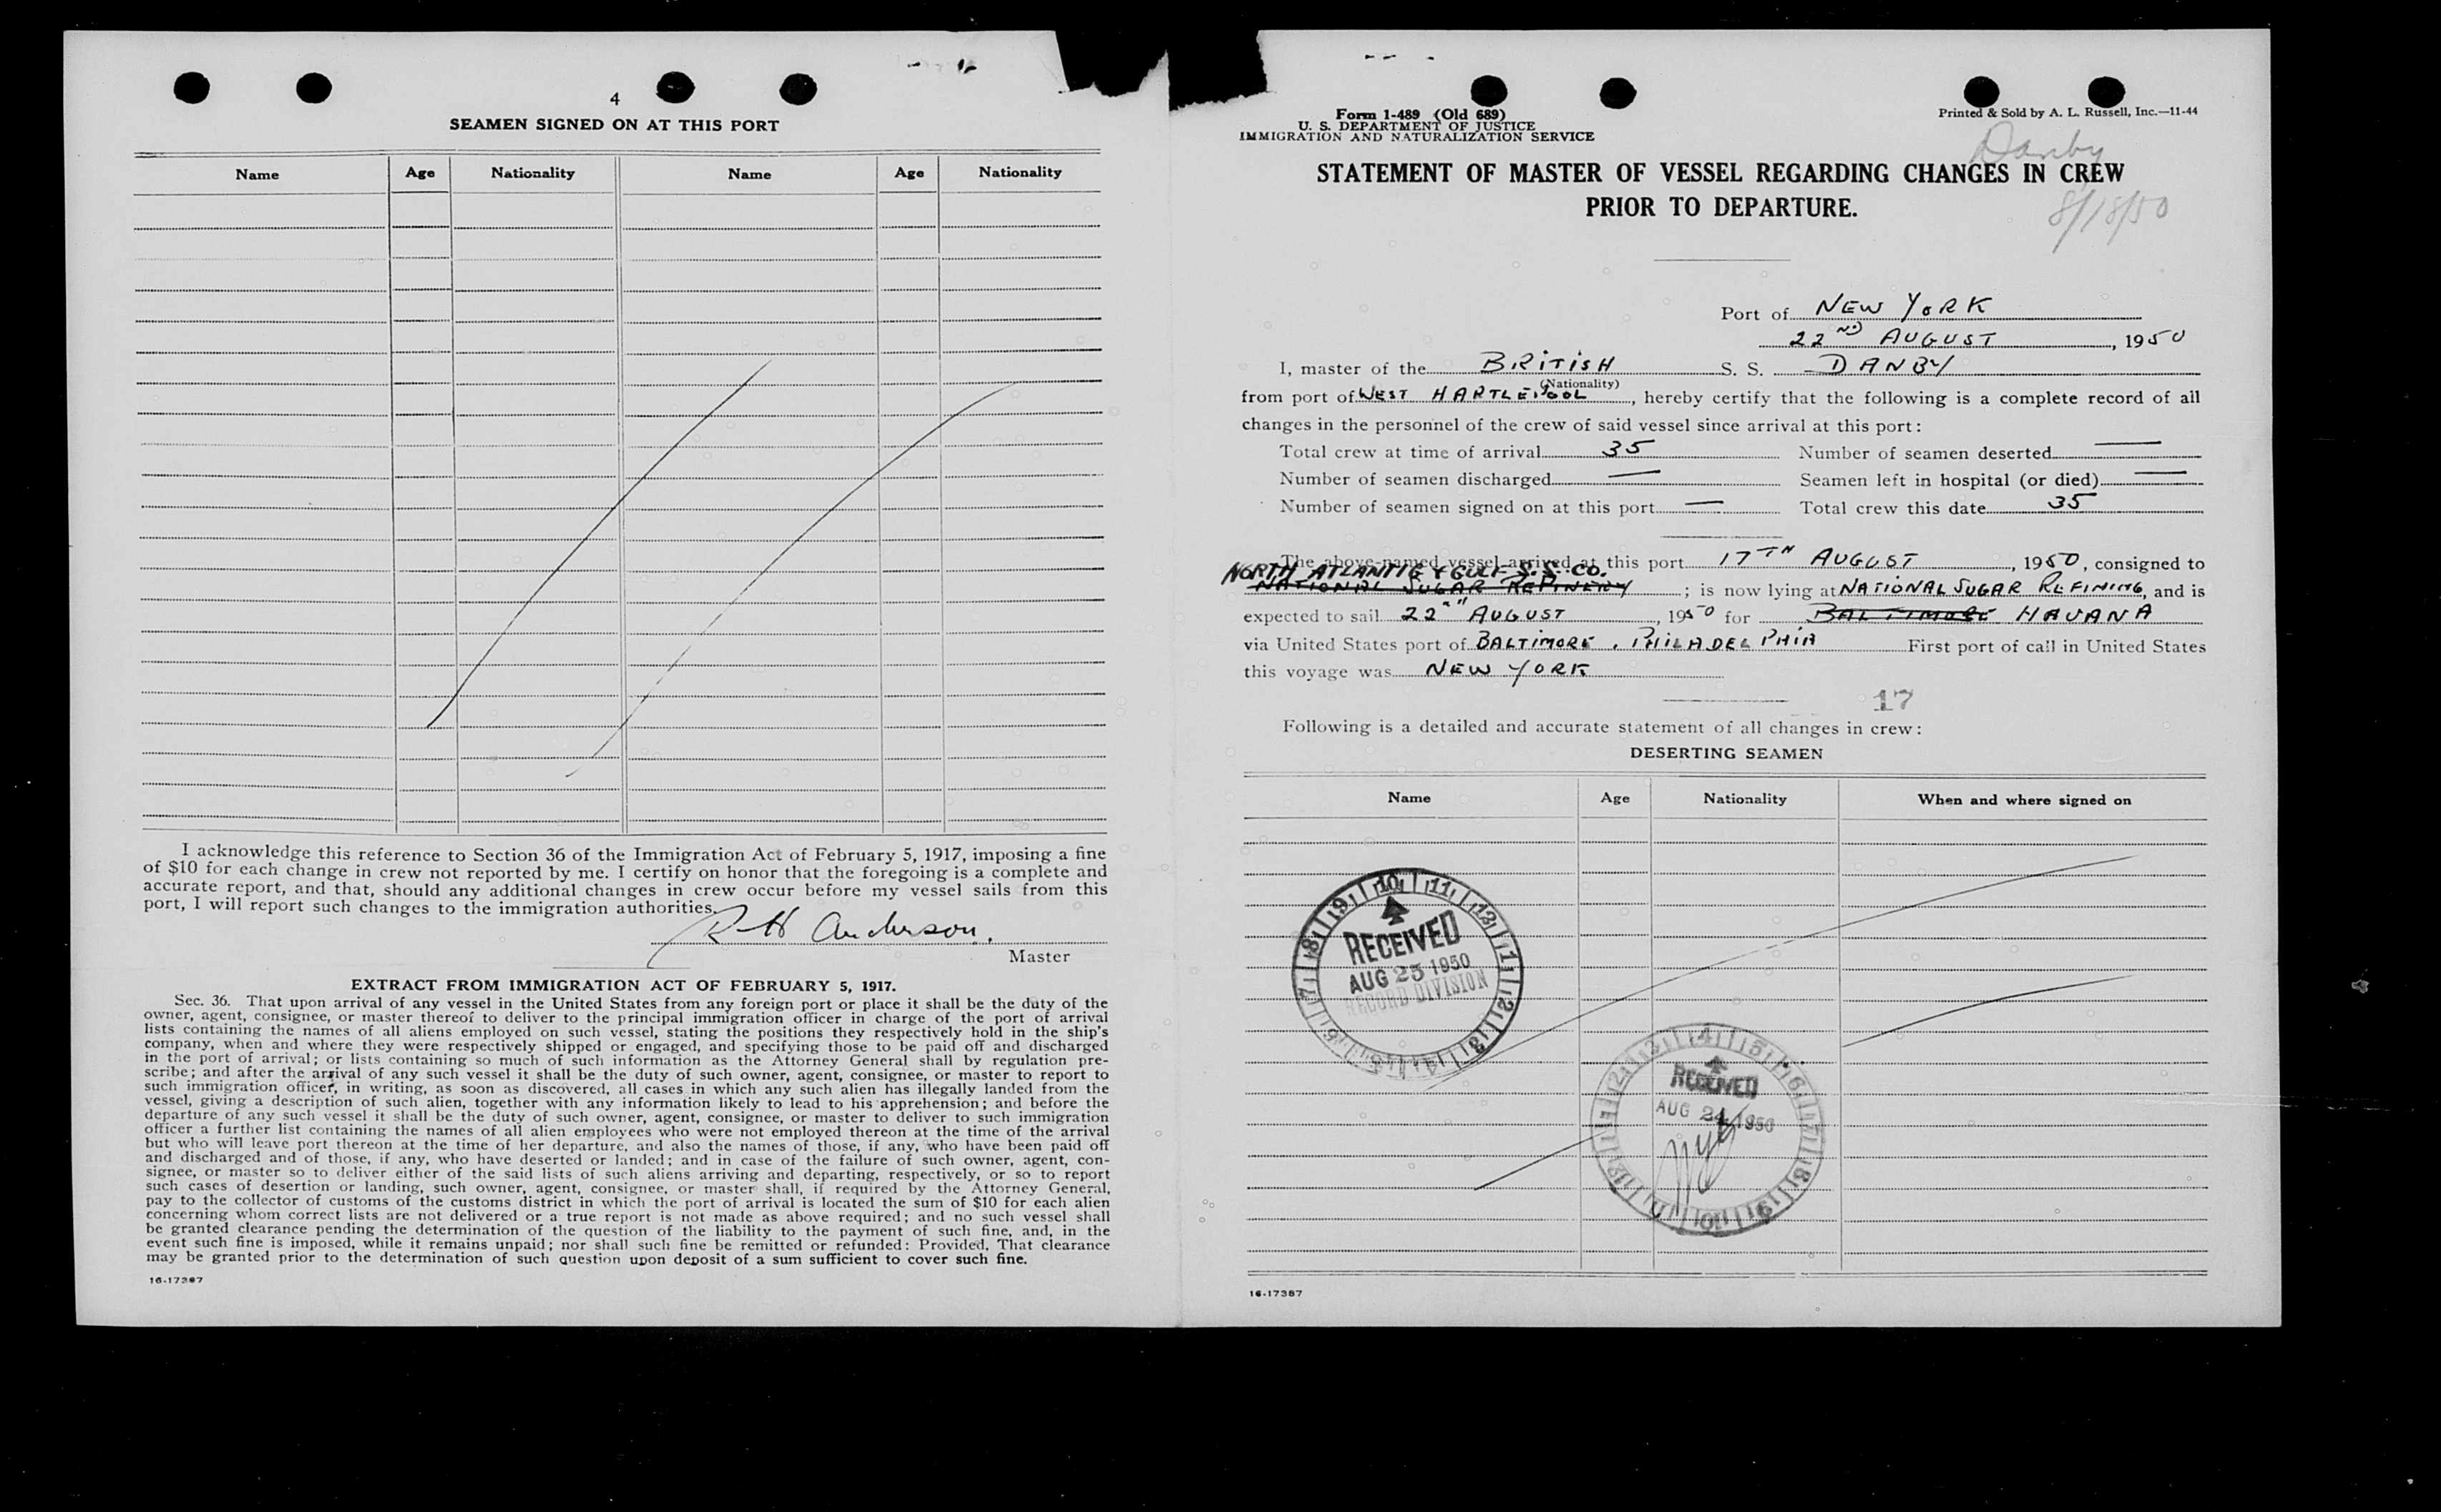 4
SEAMEN SIGNED ON AT THIS PORT
Name Age Nationality Name Age Nationality
I acknowledge this reference to Section 36 of the Immigration Act of February 5, 1917, imposing a fine
of $10 for each change in crew not reported by me. I certify on honor that the foregoing is a complete and
accurate report, and that, should any additional changes in crew occur before my vessel sails from this
port, I will report such changes to the immigration authorities.
R H Anderson.
Master
EXTRACT FROM IMMIGRATION ACT OF FEBRUARY 5, 1917.
Sec. 36. That upon arrival of any vessel in the United States from any foreign port or place it shall be the duty of the
owner, agent, consignee, or master thereof to deliver to the principal immigration officer in charge of the port of arrival
lists containing the names of all aliens employed on such vessel, stating the positions they respectively hold in the ship's
company, when and where they were respectively shipped or engaged, and specifying those to be paid off and discharged
in the port of arrival; or lists containing so much of such information as the Attorney General shall by regulation pre-
scribe; and after the arrival of any such vessel it shall be the duty of such owner, agent, consignee, or master to report to
such immigration officer, in writing, as soon as discovered, all cases in which any such alien has illegally landed from the
vessel, giving a description of such alien, together with any information likely to lead to his apprehension; and before the
departure of any such vessel it shall be the duty of such owner, agent, consignee, or master to deliver to such immigration
officer a further list containing the names of all alien employees who were not employed thereon at the time of the arrival
but who will leave port thereon at the time of her departure, and also the names of those, if any, who have been paid off
and discharged and of those, if any, who have deserted or landed; and in case of the failure of such owner, agent, con-
signee, or master so to deliver either of the said lists of such aliens arriving and departing, respectively, or so to report
such cases of desertion or landing, such owner, agent, consignee, or master shall, if required by the Attorney General,
pay to the collector of customs of the customs district in which the port of arrival is located the sum of $10 for each alien
concerning whom correct lists are not delivered or a true report is not made as above required; and no such vessel shall
be granted clearance pending the determination of the question of the liability to the payment of such fine, and, in the
event such fine is imposed, while it remains unpaid; nor shall such fine be remitted or refunded: Provided, That clearance
may be granted prior to the determination of such question upon deposit of a sum sufficient to cover such fine.
16-17387
Form 1-489 (Old 689)
U. S. DEPARTMENT OF JUSTICE
IMMIGRATION AND NATURALIZATION SERVICE
Printed & Sold by A. L. Russell, Inc.—11-44
Danby
STATEMENT OF MASTER OF VESSEL REGARDING CHANGES IN CREW
PRIOR TO DEPARTURE.
8/18/50
Port of NEW YORK
22ND AUGUST, 1950
I, master of the BRITISH S. S. DANBY
(Nationality)
from port of WEST HARTLEPOOL, hereby certify that the following is a complete record of all
changes in the personnel of the crew of said vessel since arrival at this port:
Total crew at time of arrival 35 Number of seamen deserted —
Number of seamen discharged — Seamen left in hospital (or died) —
Number of seamen signed on at this port — Total crew this date 35
The above-named vessel arrived at this port 17TH AUGUST, 1950, consigned to
NORTH ATLANTIC & GULF S.S. CO.
NATIONAL SUGAR REFINERY; is now lying at NATIONAL SUGAR REFINING, and is
expected to sail 22nd AUGUST, 1950 for BALTIMORE HAVANA
via United States port of BALTIMORE, PHILADELPHIA First port of call in United States
this voyage was NEW YORK
17
Following is a detailed and accurate statement of all changes in crew:
DESERTING SEAMEN
Name Age Nationality When and where signed on
10 11 12 1 2 3 4 5 6 7 8 9
RECEIVED
AUG 25 1950
RECORD DIVISION
4 5 6 7 8 9 10 11 12 1 2 3
RECEIVED
AUG 24 1950
16-17387